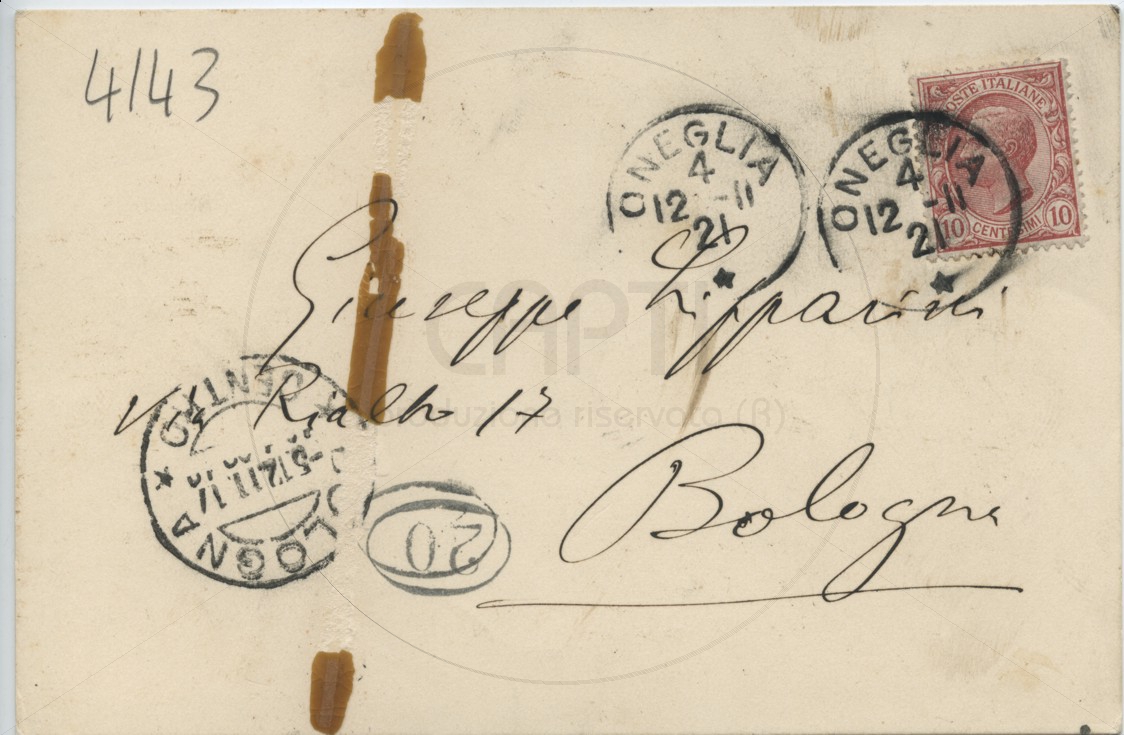 4143
POSTE ITALIANE
10 CENTESIMI 10
ONEGLIA
4
12 -11
21
ONEGLIA
4
12 -11
21
Giuseppe Lipparini
CAPTI
Via Rialto 17
riproduzione riservata (β)
Bologna
BOLOGNA * CENTRO *
-5.12.11.17
20